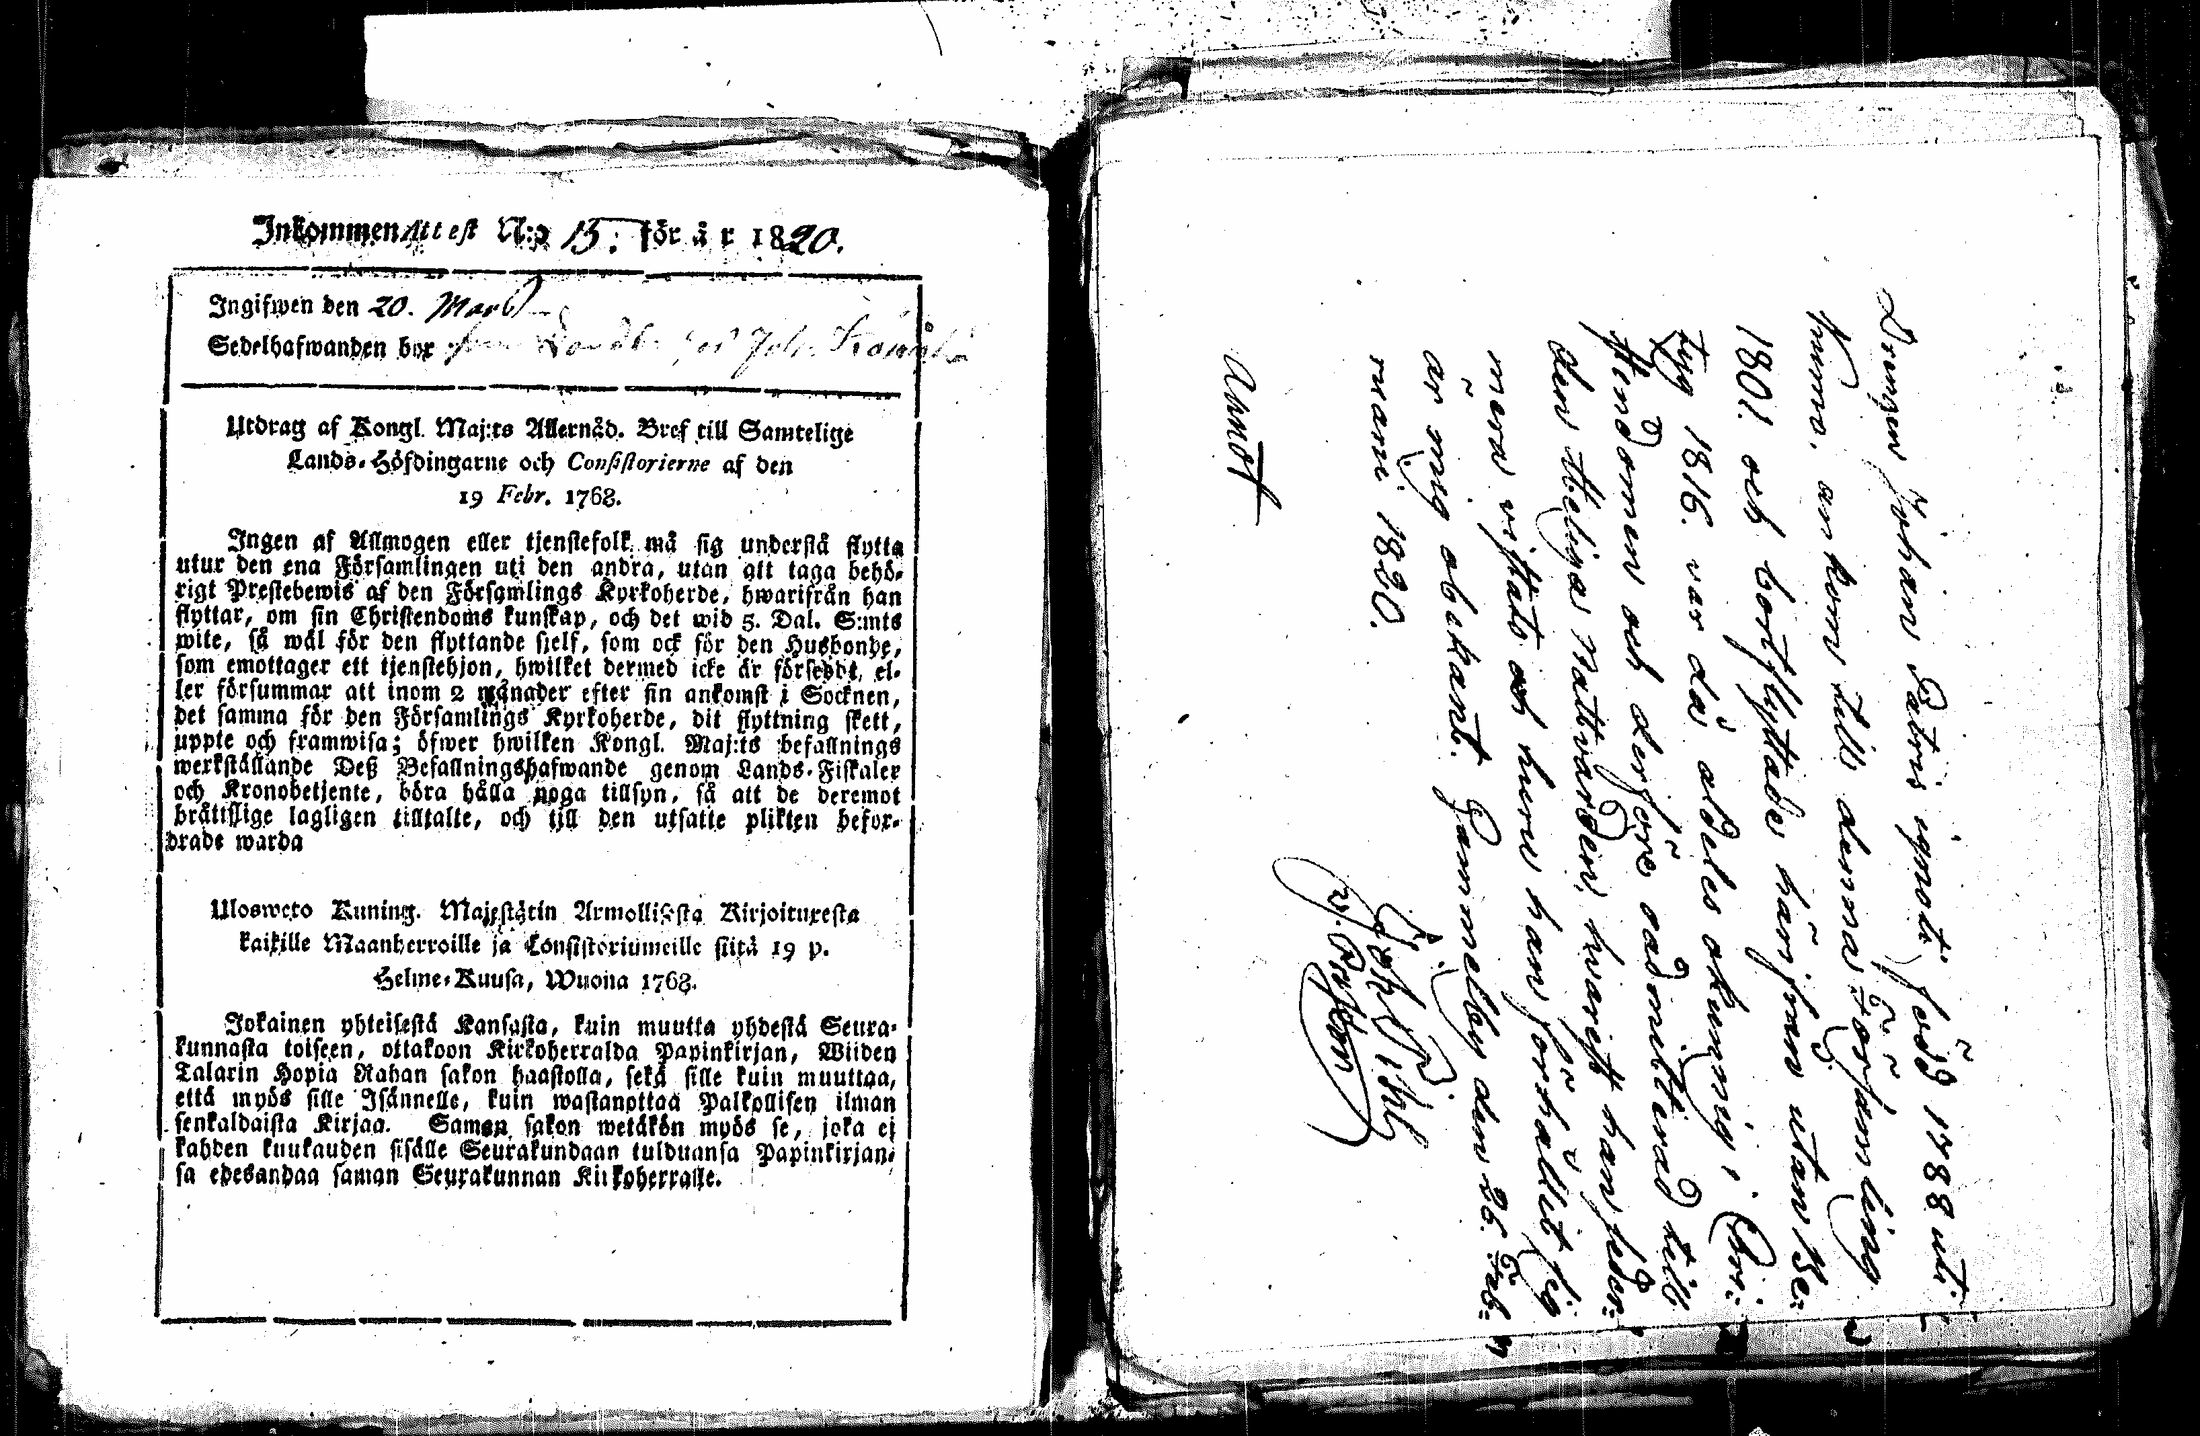 Inkommen Attest N:o 15. för år 1820.
Ingifwen den 20. Mart
Sedelhafwanden bor hos Joh.
Utdrag af Kongl. Maj:ts Allernåd. Bref till Samtelige
Lands-Höfdingarne och Consistorierne af den
19 Febr. 1768.
Ingen af Allmogen eller tjenstefolk må sig understå flytta
utur den ena Församlingen uti den andra, utan att taga behö-
rigt Prestebewis af den Församlings Kyrkoherde, hwarifrån han
flyttar, om sin Christendoms kunskap, och det wid 5. Dal. S:mts
wite, så wäl för den flyttande sjelf, som ock för den Husbonde,
som emottager ett tjenstehjon, hwilket dermed icke är försedt, el-
ler försummar att inom 2 månader efter sin ankomst i Socknen,
det samma för den Församlings Kyrkoherde, dit flyttning skett,
uppte och framwisa; öfwer hwilken Kongl. Maj:ts befallnings
werkställande Deß Befallningshafwande genom Lands-Fiskaler
och Kronobetjente, böra hålla noga tillsyn, så att de deremot
bråttslige lagligen tilltalte, och till den utsatte plikten befor-
drade warda
Ulosweto Kuning. Majestätin Armollisesta Kirjoituxesta
kaikille Maanherroille ja Consistoriumeille siitä 19 p.
Helme-Kuusa, Wuona 1768.
Jokainen yhteisestä Kansasta, kuin muutta yhdestä Seura-
kunnasta toiseen, ottakoon Kirkoherralda Papinkirjan, Wiiden
Talarin Hopia Rahan sakon haastolla, sekä sille kuin muuttaa,
että myös sille Isännelle, kuin wastanottaa Palkollisen ilman
senkaldaista Kirjaa. Saman sakon wetäkön myös se, joka ei
kahden kuukauden sisälle Seurakundaan tulduansa Papinkirjan-
sa edesandaa saman Seurakunnan Kirkoherralle.
Drengen Johan Patris ignoti född 1788 uti
Kumo, ankom till denna Församling
1801. och bortflyttade härifrån utan Be:
tyg 1816. var då aldeles okunnig i Chri:
stendomen och derföre oadmitterad till
den Heliga Nattvarden, hvarest han seder:
mera vistats och huru han förhållit sig
är mig obekant. Gammelby den 26. Feb:
rarii 1820.
Joh: Pihl
Attest